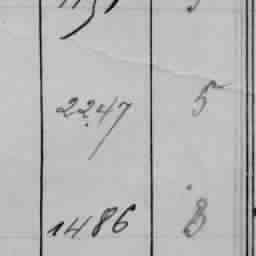 2247 5
1486 8